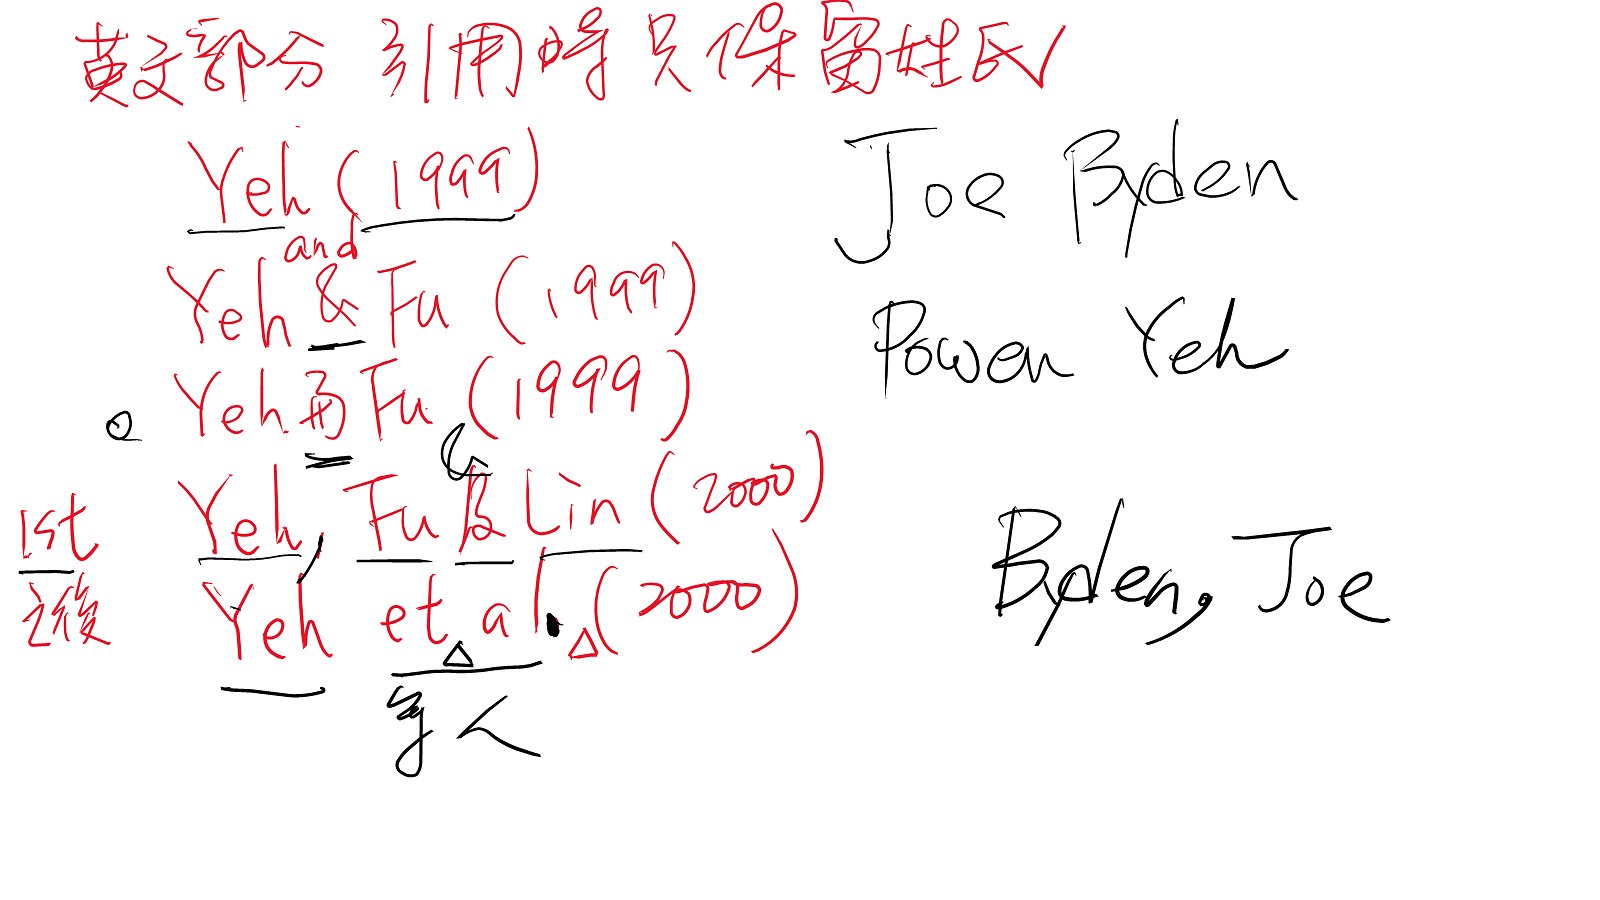 英文部分 引用時只保留姓氏
Yeh (1999)
and
Yeh & Fu (1999)
Yeh 和 Fu (1999)
1st Yeh, Fu 及 Lin (2000)
之後 Yeh et al. (2000)
等人
Joe Byden
Powen Yeh
Byden, Joe